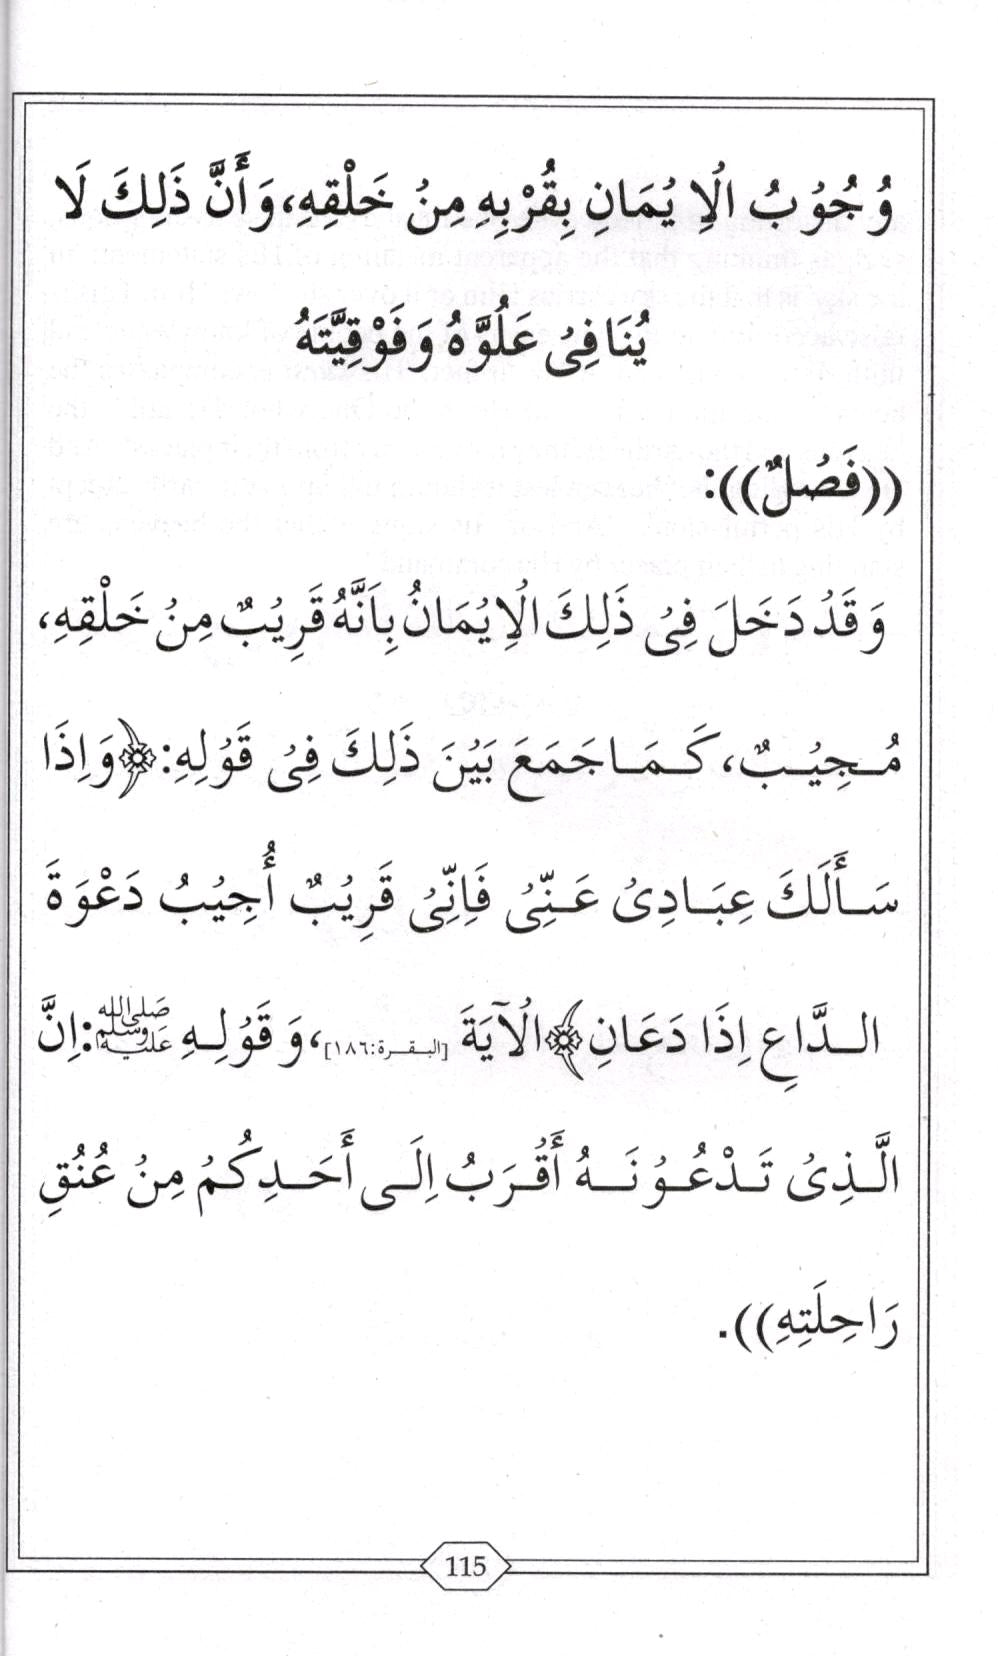 وُجُوْبُ الْاِيْمَانِ بِقُرْبِهِ مِنْ خَلْقِهِ، وَأَنَّ ذَلِكَ لَا
يُنَافِىْ عَلُوَّهُ وَفَوْقِيَّتَهُ
((فَصْلٌ)):
وَقَدْ دَخَلَ فِىْ ذَلِكَ الْاِيْمَانُ بِاَنَّهُ قَرِيْبٌ مِنْ خَلْقِهِ،
مُجِيْبٌ، كَمَا جَمَعَ بَيْنَ ذَلِكَ فِىْ قَوْلِهِ: ﴿وَاِذَا
سَأَلَكَ عِبَادِىْ عَنِّىْ فَاِنِّىْ قَرِيْبٌ أُجِيْبُ دَعْوَةَ
الدَّاعِ اِذَا دَعَانِ﴾ الْآيَةَ [البقرة:١٨٦]، وَقَوْلِهِ ﷺ: اِنَّ
الَّذِىْ تَدْعُوْنَهُ أَقْرَبُ اِلَى أَحَدِكُمْ مِنْ عُنُقِ
رَاحِلَتِهِ)).
115